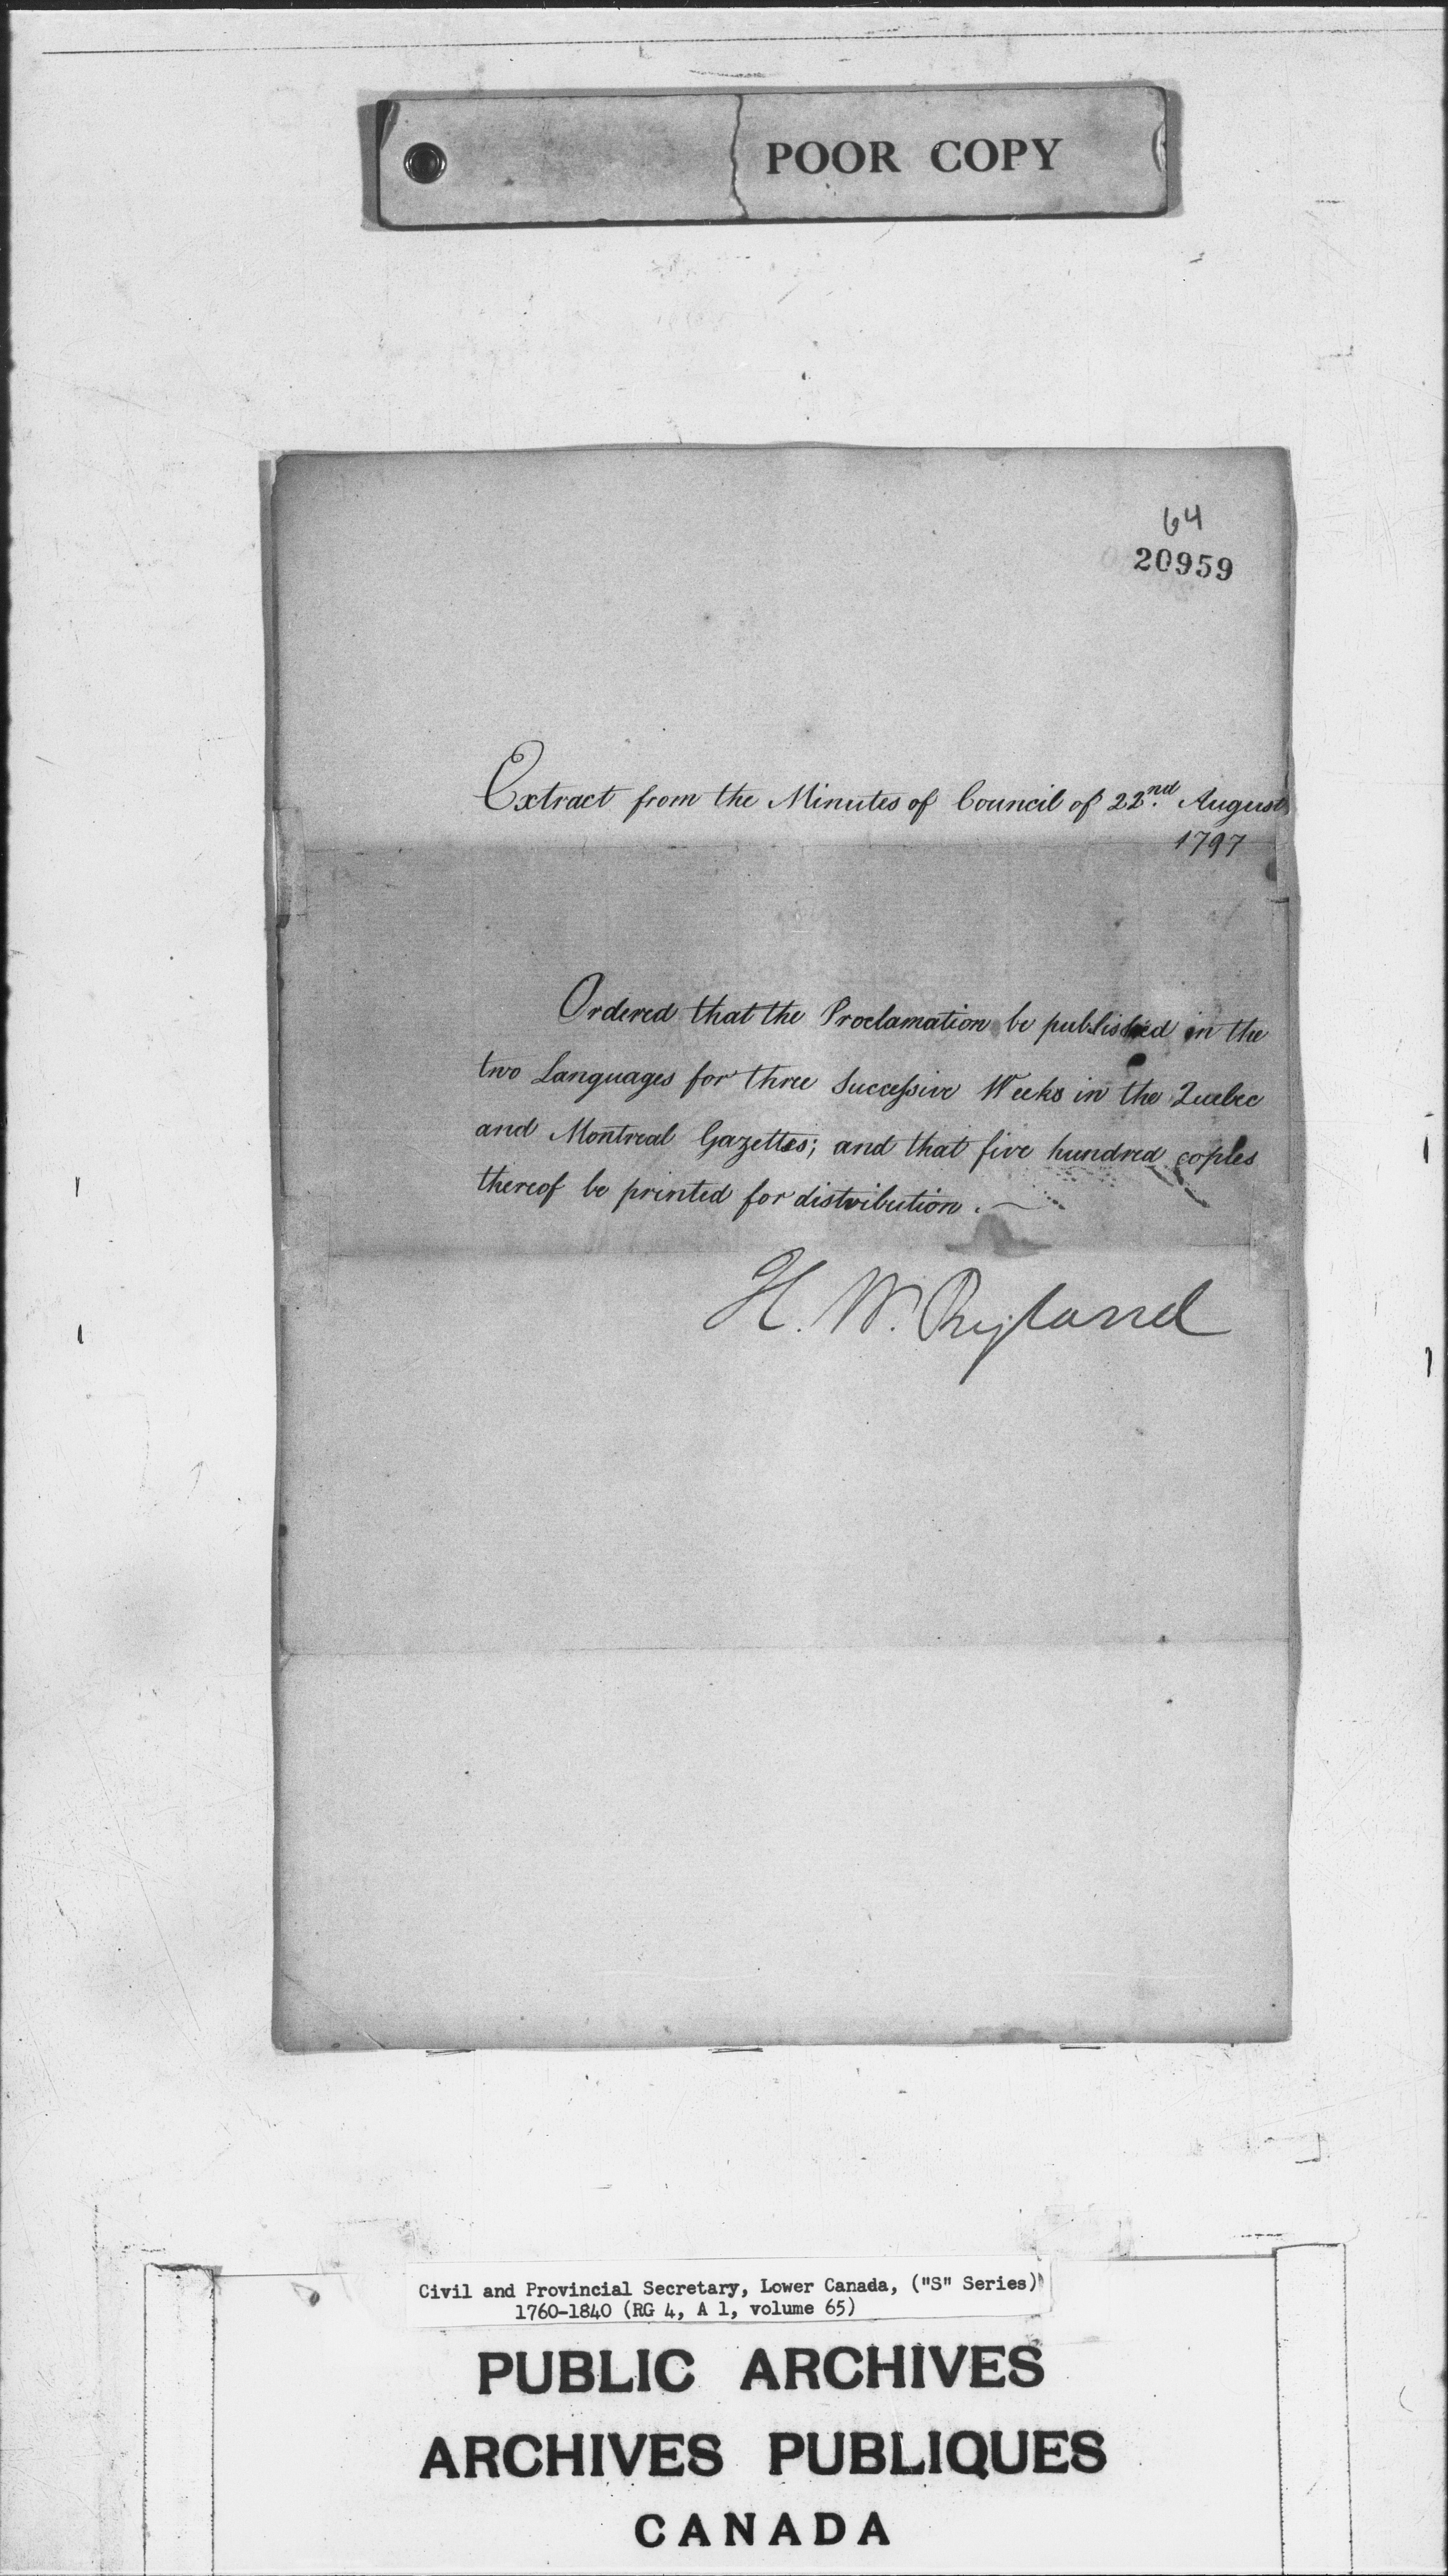 POOR COPY
64
20959
Extract from the Minutes of Council of 22nd. August
1797
Ordered that the Proclamation be published in the
two Languages for three Successive Weeks in the Quebec
and Montreal Gazettes; and that five hundred copies
thereof be printed for distribution.
H. W. Ryland
Civil and Provincial Secretary, Lower Canada, ("S" Series)
1760-1840 (RG 4, A 1, volume 65)
PUBLIC ARCHIVES
ARCHIVES PUBLIQUES
CANADA